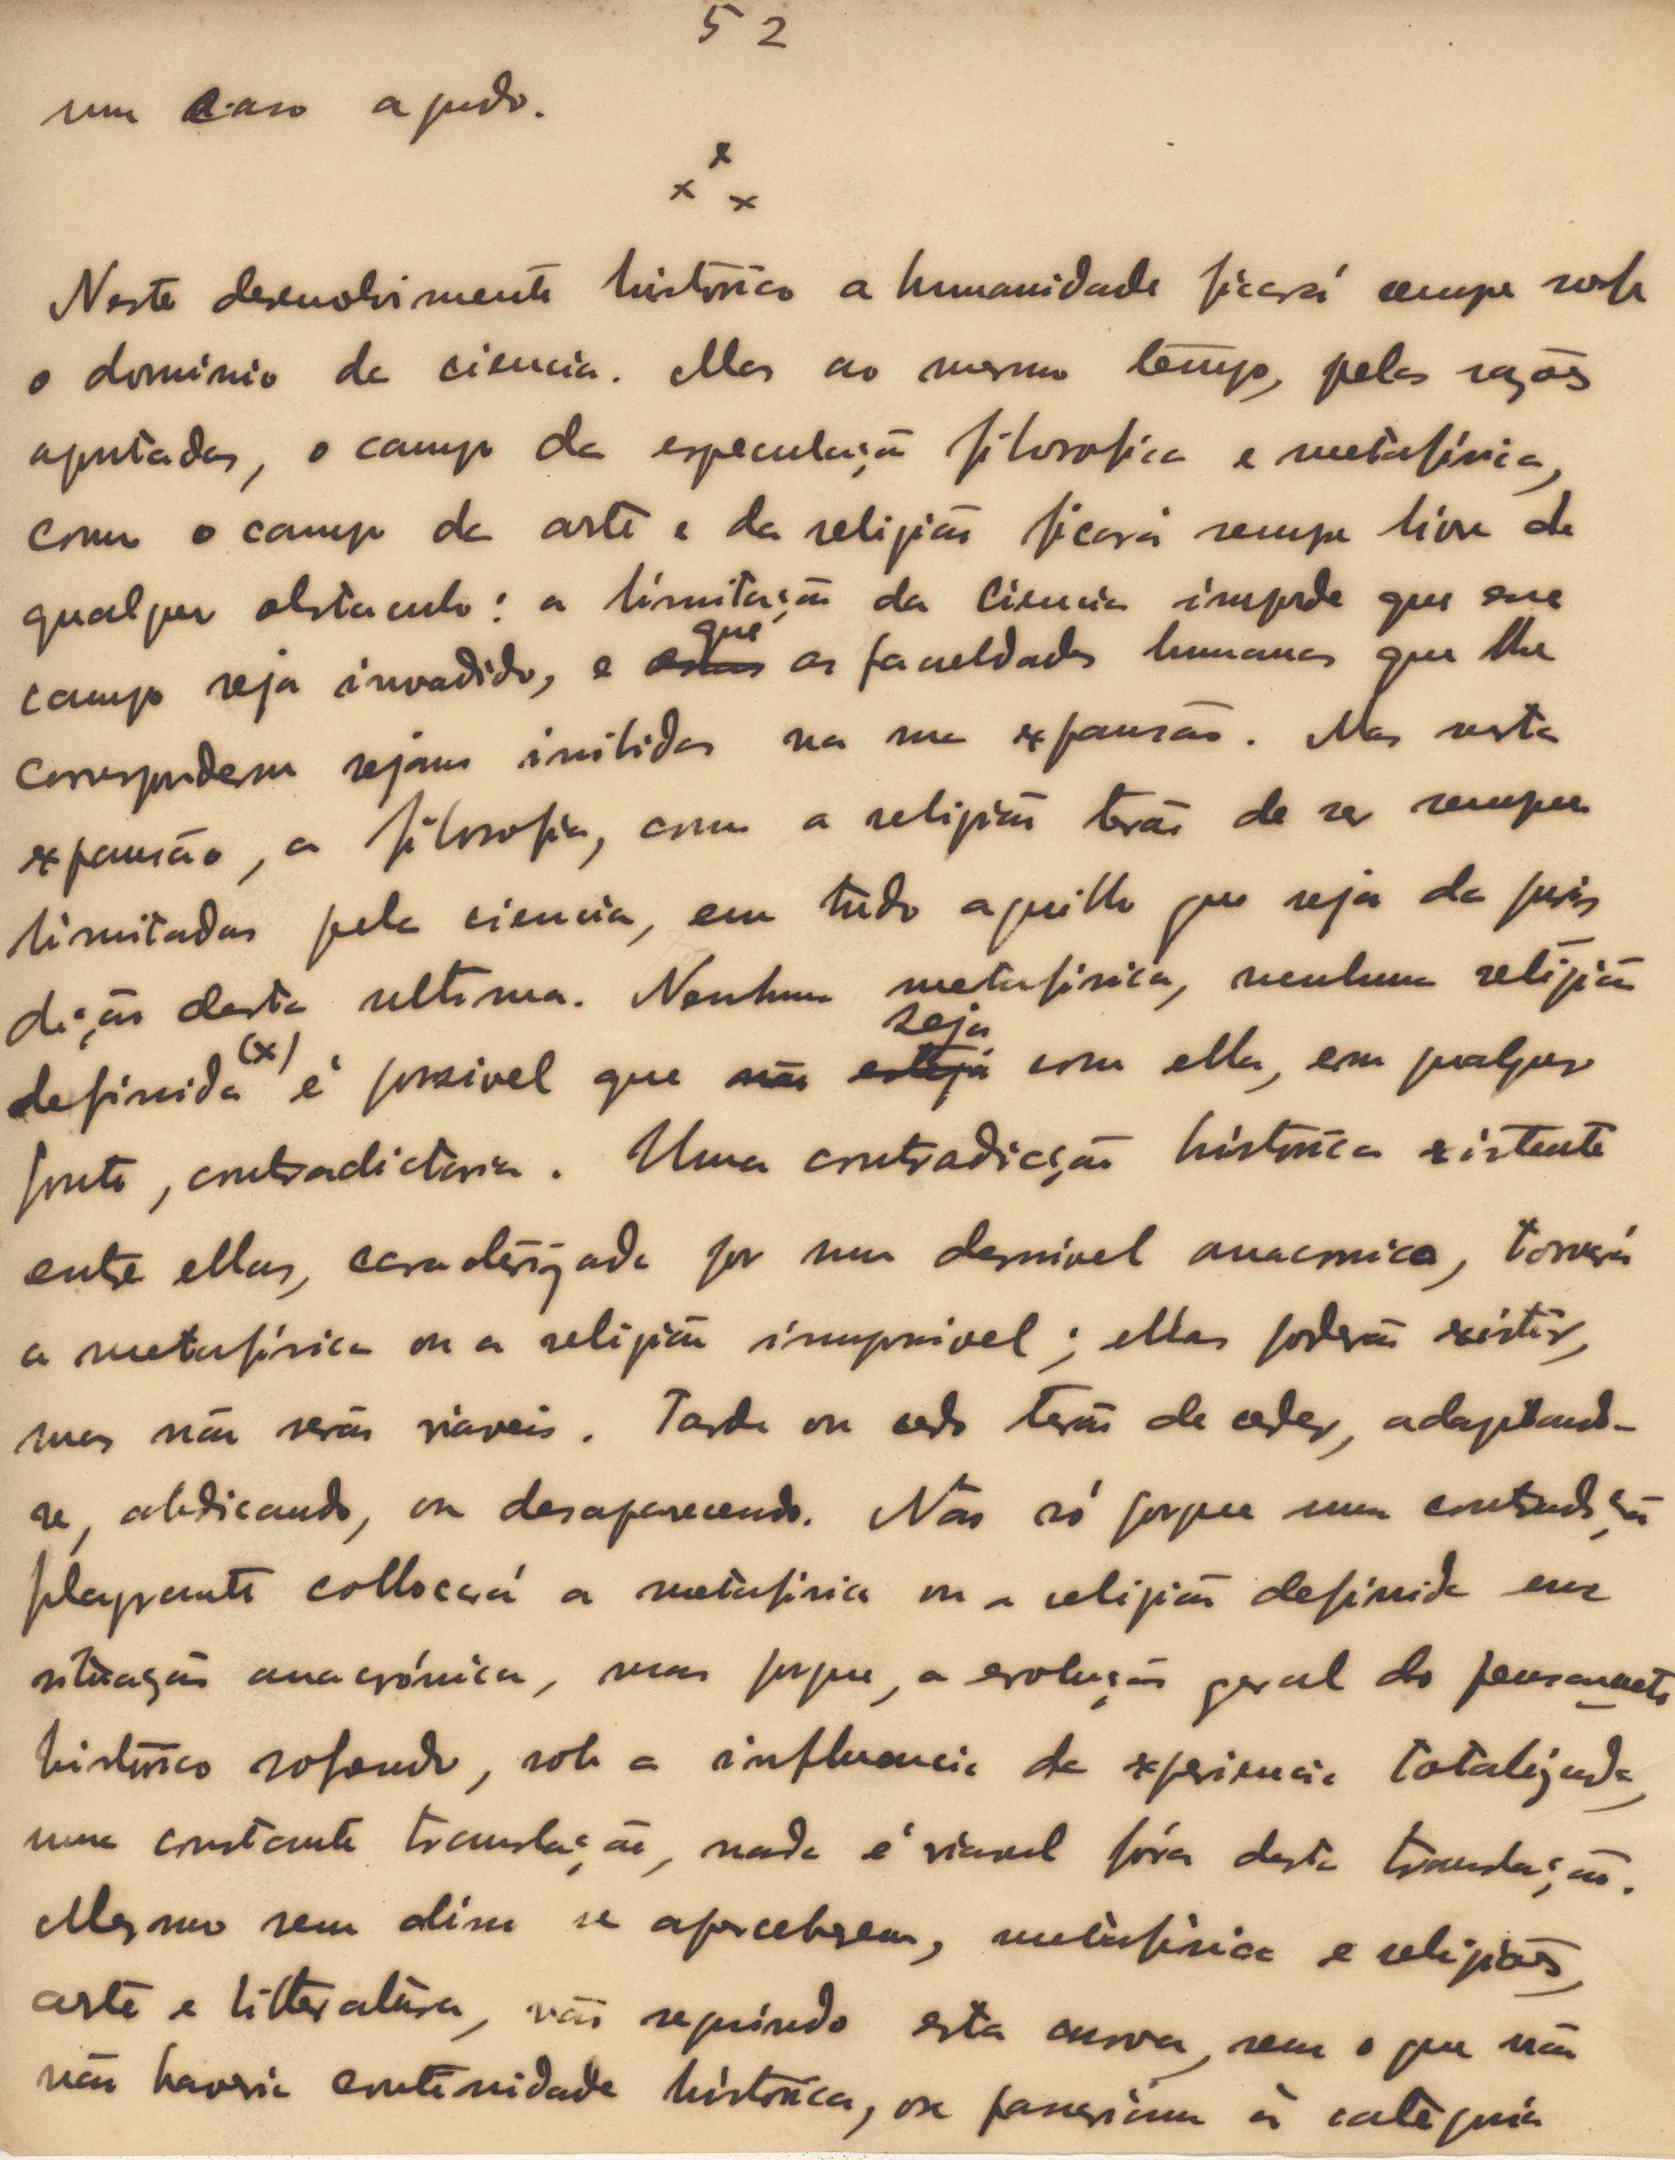 52
um caso agudo.
x x x
Neste desenvolvimento historico a humanidade ficará sempre sob
o dominio da ciencia. Mas ao mesmo tempo, pelas razões
apontadas, o campo da especulação filosofica e metafísica,
como o campo da arte e da religião ficará sempre livre de
qualquer obstaculo: a limitação da ciencia impede que esse
campo seja invadido, e que as faculdades humanas que lhe
correspondem sejam inibidas na sua expansão. Mas nesta
expansão, a filosofia, como a religião terão de ser sempre
limitadas pela ciencia, em tudo aquillo que seja da juris
dição desta ultima. Nenhuma metafísica, nenhuma religião
definida (x) é possivel que não seja com ella, em qualquer
ponto, contradictoria. Uma contradicção histórica existente
entre ellas, caracterizada por um desnivel anacronico, tornará
a metafísica ou a religião impossivel; ellas poderão existir,
mas não serão viaveis. Tarde ou cedo terão de ceder, adaptando-
se, abdicando, ou desaparecendo. Não só porque uma contradição
flagrante collocará a metafísica ou a religião definida em
situação anacrónica, mas porque, a evolução geral do pensamento
histórico sofrendo, sob a influencia da experiencia totalizada,
uma constante translação, nada é viavel fóra desta translação.
Mesmo sem disso se aperceberem, metafísica e religiões,
arte e litteratura, vão seguindo esta curva, sem o que não
não haveria continuidade histórica, ou passariam à categoria